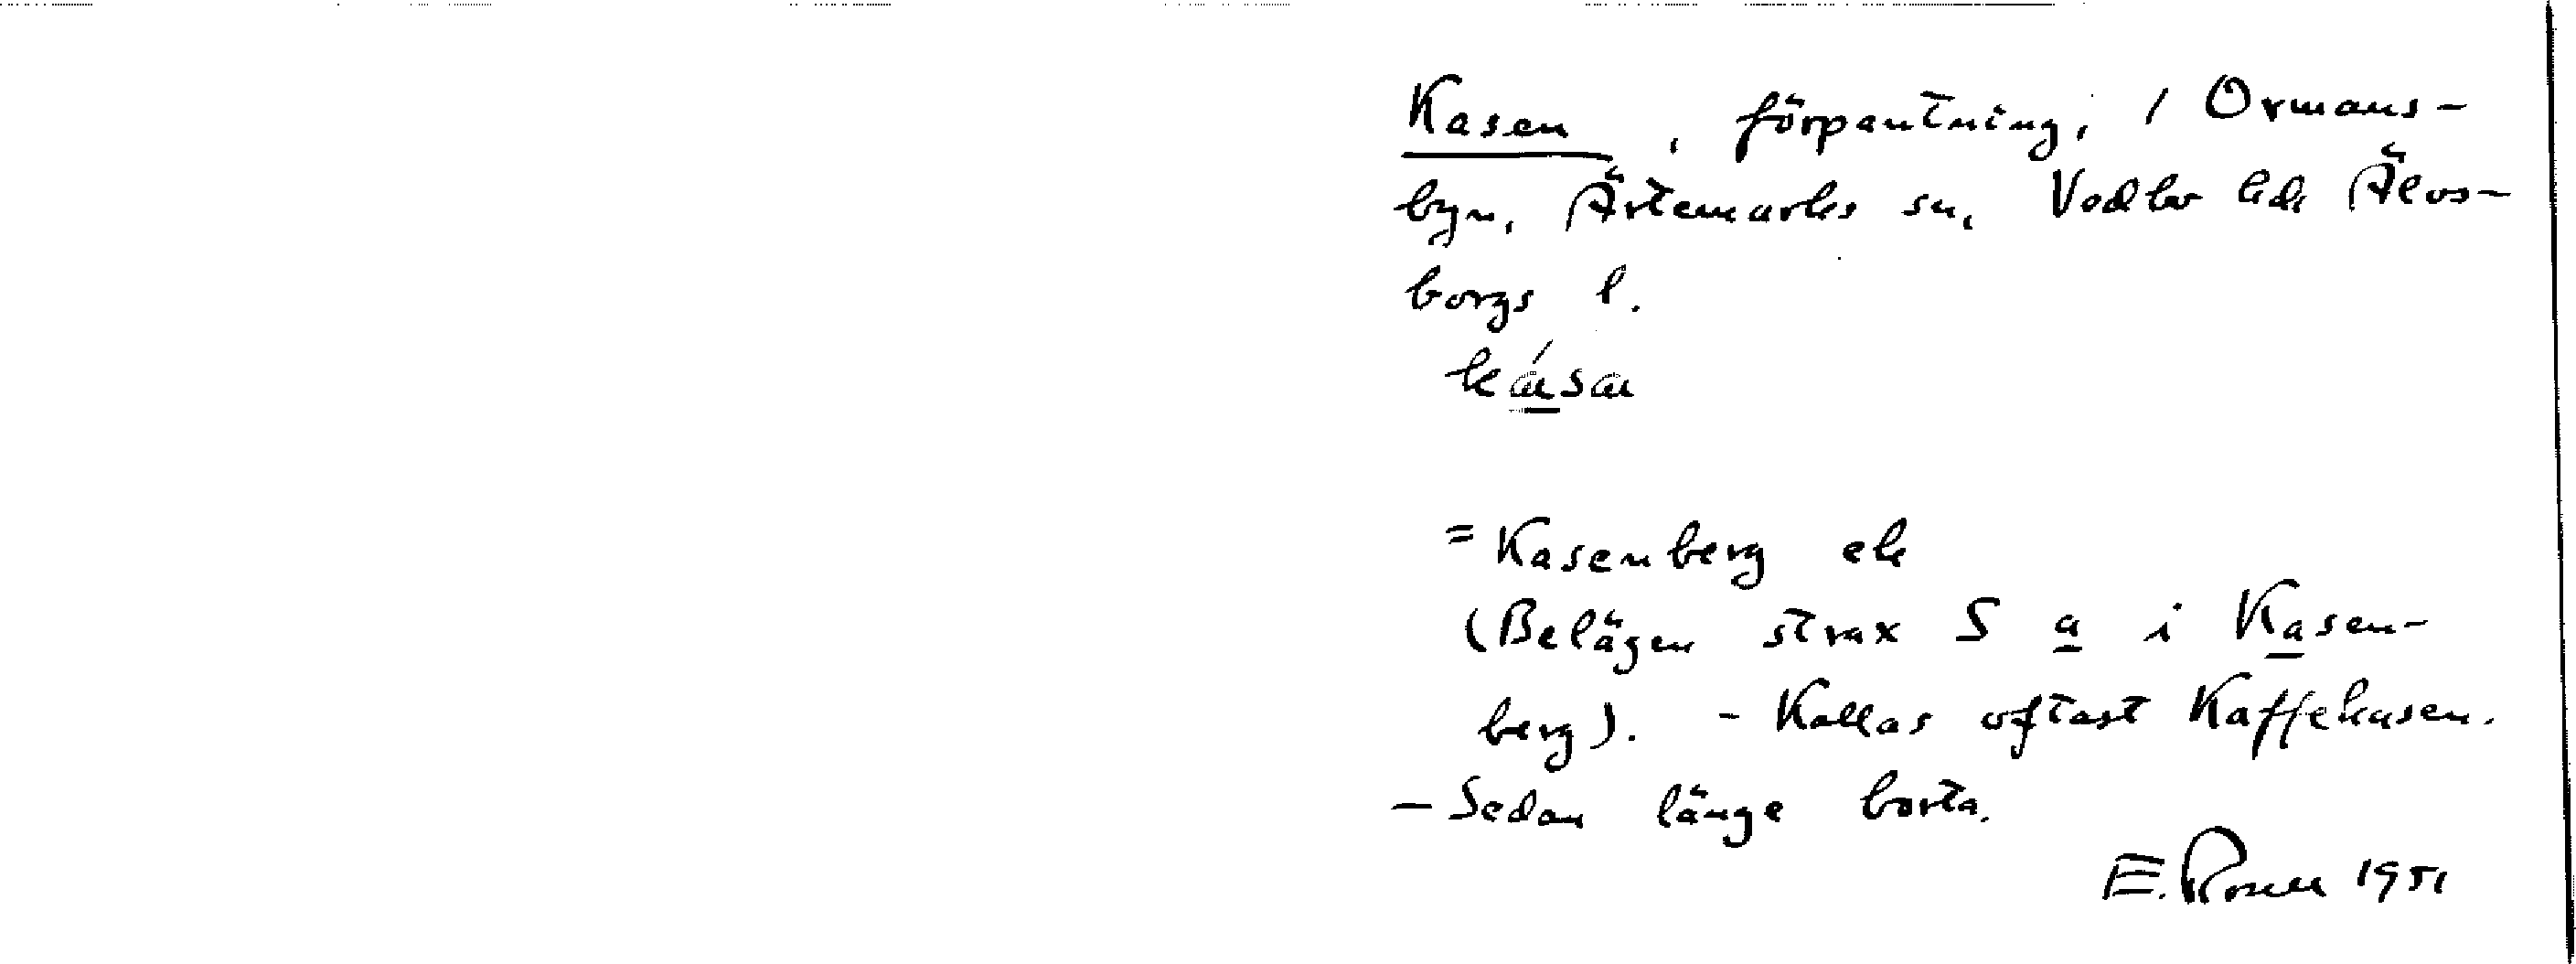 Kasen, förpantning, i Ormans-
byn, Ärtemarks sn, Vedbo hd, Älvs-
borgs l.
kásan
= Kasenberg ek
(Belägen strax S a i Kasen-
berg). - Kallas oftast Kaffekasen.
- Sedan länge borta.
E. Rosell 1951